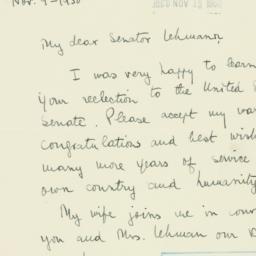 Nov. 9-1950
REC'D NOV
My dear Senator Lehman,
I was very happy to learn
your reelection to the United S
Senate. Please accept my wa
congratulations and best wish
many more years of service
own country and humanity
My wife joins me in conv
you and Mrs. Lehman our